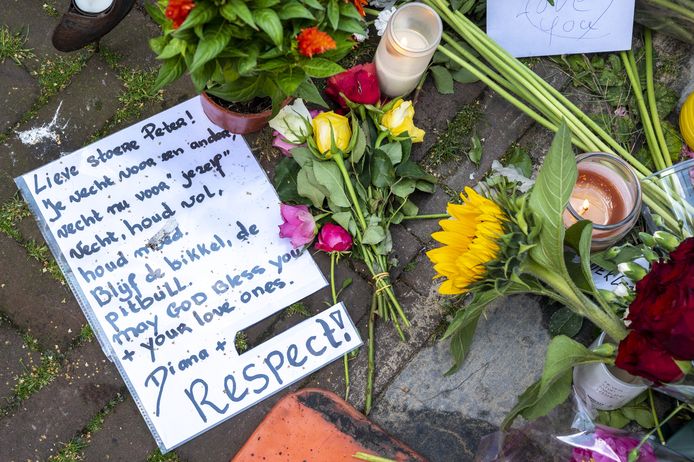 Lieve stoere Peter!
Je vecht voor een ander,
vecht nu voor "jezelf"
Vecht, houd vol,
houd moed.
Blijf de bikkel, de
pitbull.
may GOD Bless you
+ your love ones.
Diana +
Respect!
love
you